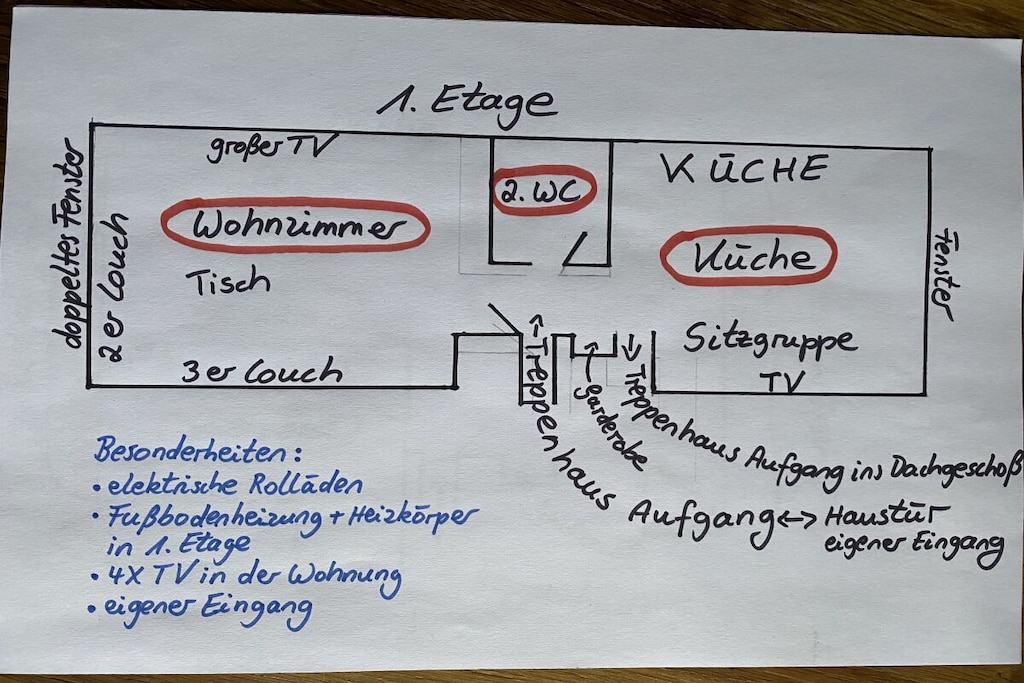 1. Etage
großer TV
KÜCHE
2. WC
Wohnzimmer
Küche
doppeltes Fenster
2er Couch
Fenster
Tisch
Sitzgruppe
3er Couch
TV
Treppenhaus Aufgang <-> Haustür
eigener Eingang
garderobe
Treppenhaus Aufgang ins Dachgeschoß
Besonderheiten:
• elektrische Rolläden
• Fußbodenheizung + Heizkörper
in 1. Etage
• 4X TV in der Wohnung
• eigener Eingang